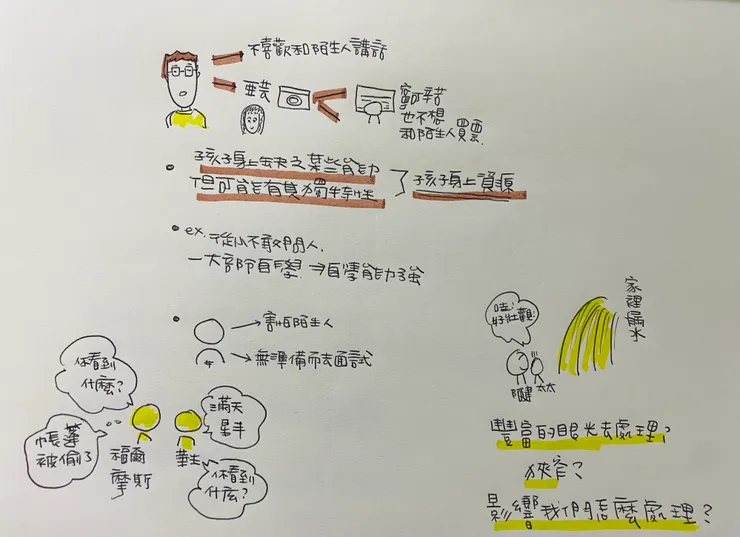 不喜歡和陌生人講話
寧可辛苦
也不想
和陌生人買票
孩子身上缺乏某些能力
但可能有其獨特性
孩子身上資源
ex. 從小不敢問人.
一大部份自學 → 自學能力強
→ 害怕陌生人
→ 無準備而去面試
你看到
什麼?
帳篷
被偷了
福爾
摩斯
滿天
星斗
華生
你看到
什麼?
哇!
好壯觀!
家裡漏水
太太
豐富的眼光去處理?
狹窄?
影響我們怎麼處理?